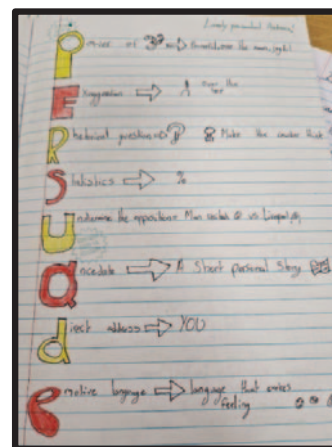 Power of 3
Exaggeration over the top
Rhetorical question ? Make the reader think
Statistics %
Undermine the opposition Man united vs Liverpool
Anecdote A Short personal Story
direct address YOU
emotive language language that evokes
feeling